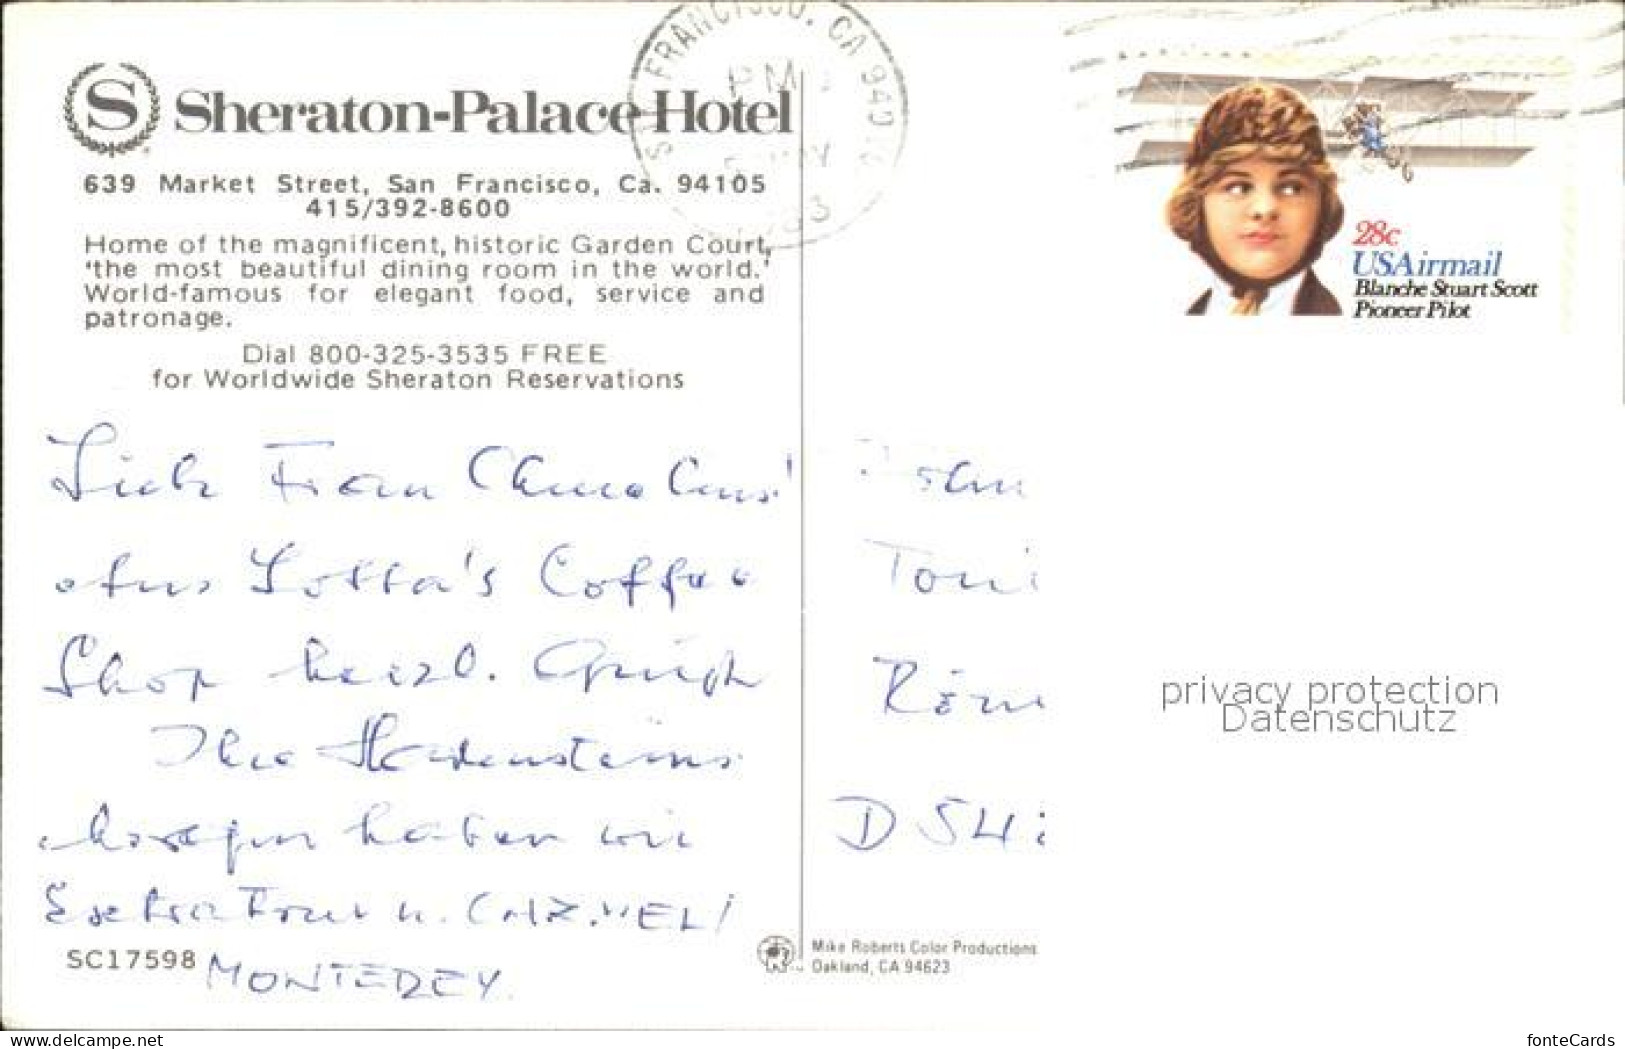 S
Sheraton-Palace Hotel
639 Market Street, San Francisco, Ca. 94105
415/392-8600
Home of the magnificent, historic Garden Court,
'the most beautiful dining room in the world.'
World-famous for elegant food, service and
patronage.
Dial 800-325-3535 FREE
for Worldwide Sheraton Reservations
FRANCISCO, CA 940
PM
28c
USAirmail
Blanche Stuart Scott
Pioneer Pilot
Frau
aus Lotta's Coffee
Shop herzl. Grüße
Ihre
morgen haben wir
Extratour n. CARMEL/
MONTEREY
Toni
D 54
privacy protection
Datenschutz
SC17598
Mike Roberts Color Productions
Oakland, CA 94623
www.delcampe.net
fonteCards